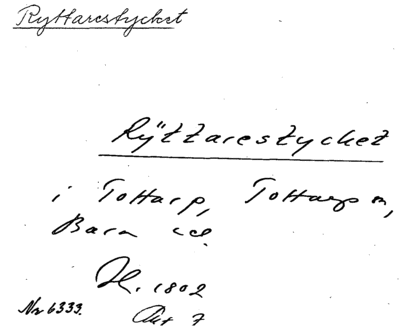 Ryttarestycket
Rÿttarestycket
i Tottarp, Tottarps sn,
Bara hd.
H. 1802
Nr 6333. Akt 7